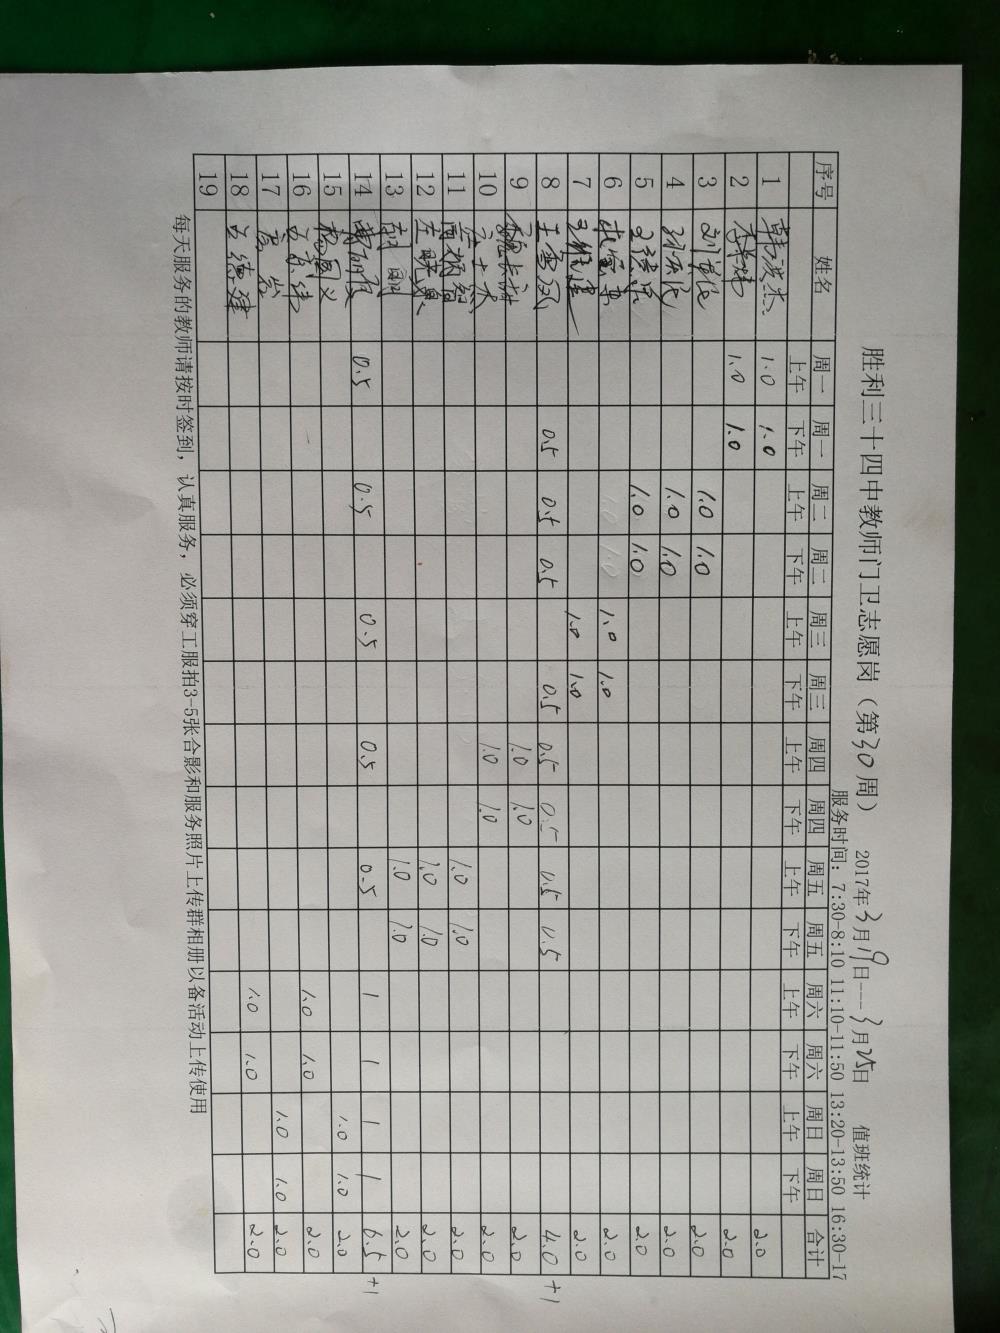 胜利三十四中教师门卫志愿岗（第30周） 2017年3月19日---3月25日 值班统计
服务时间：7:30-8:10 11:10-11:50 13:20-13:50 16:30-17
序号 姓名 周一 周一 周二 周二 周三 周三 周四 周四 周五 周五 周六 周六 周日 周日 合计
上午 下午 上午 下午 上午 下午 上午 下午 上午 下午 上午 下午 上午 下午
1 1.0 1.0 2.0
2 1.0 1.0 2.0
3 1.0 1.0 2.0
4 1.0 1.0 2.0
5 1.0 1.0 2.0
6 1.0 1.0 2.0
7 1.0 1.0 2.0
8 王雪凤 0.5 0.5 0.5 0.5 0.5 0.5 0.5 0.5 4.0 +1
9 1.0 1.0 2.0
10 1.0 1.0 2.0
11 1.0 1.0 2.0
12 左晓泉 1.0 1.0 2.0
13 1.0 1.0 2.0
14 0.5 0.5 0.5 0.5 0.5 1 1 1 1 6.5 +1
15 杨国义 1.0 1.0 2.0
16 1.0 1.0 2.0
17 1.0 1.0 2.0
18 1.0 1.0 2.0
19
每天服务的教师请按时签到，认真服务，必须穿工服拍3-5张合影和服务照片上传群相册以备活动上传使用